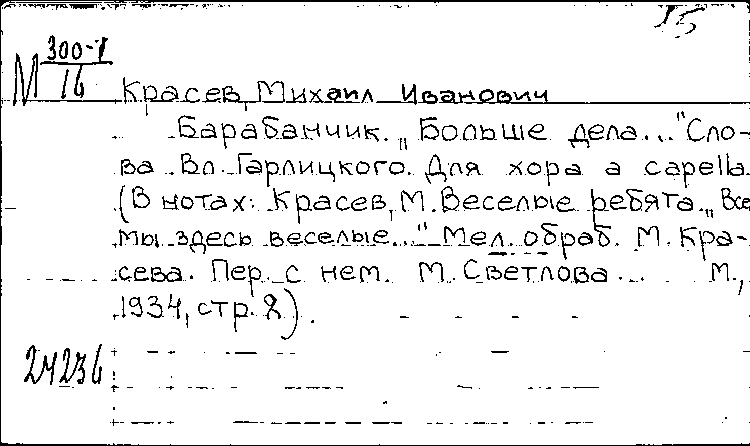 15
М 300-1/16
Красев, Михаил Иванович
Барабанчик. „Больше дела..." Сло-
ва Вл. Гарлицкого. Для хора a capella
(В нотах: Красев, М. Веселые ребята. „Все
мы здесь веселые..." Мел. обраб. М. Кра-
сева. Пер. с нем. М. Светлова... М.,
1934, стр. 8).
24236